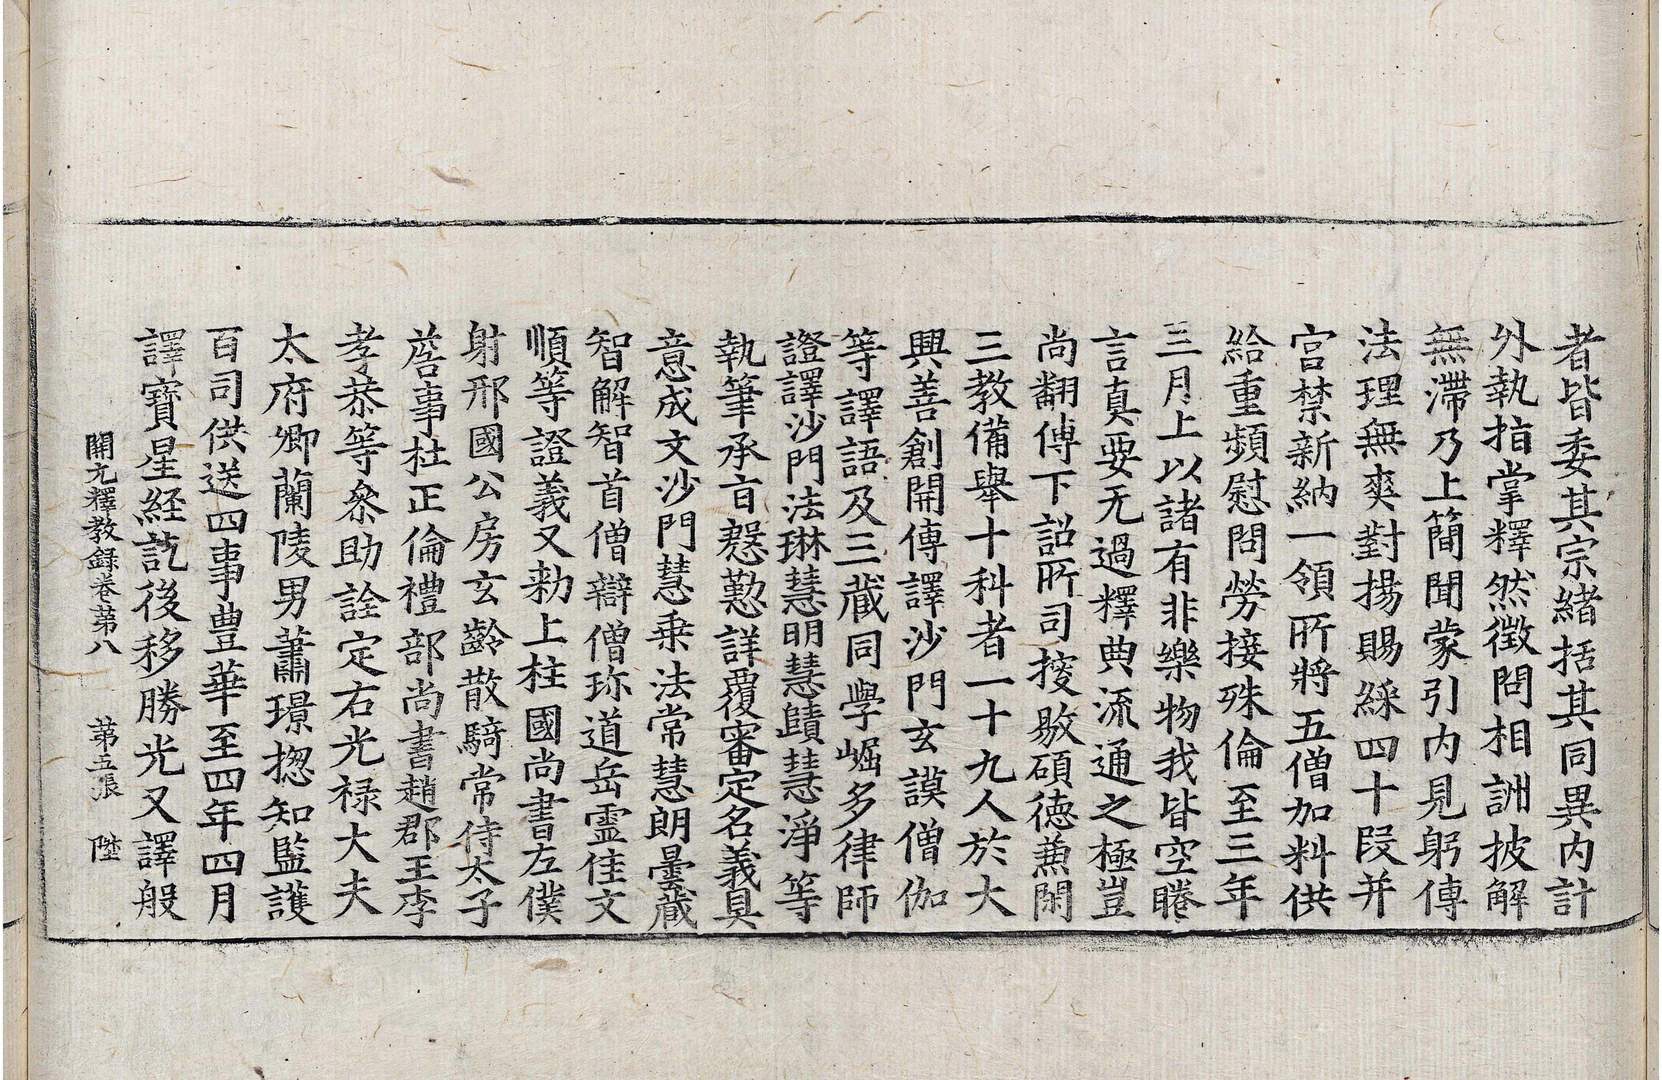 者皆委其宗緒括其同異內計
外執指掌釋然徵問相詶披解
無滯乃上簡聞蒙引內見躬傳
法理無爽對揚賜綵四十段并
宮禁新納一領所將五僧加料供
給重頻慰問勞接殊倫至三年
三月上以諸有非樂物我皆空睠
言真要无過釋典流通之極豈
尚翻傳下詔所司搜敭碩德兼閑
三教備舉十科者一十九人於大
興善創開傳譯沙門玄謨僧伽
等譯語及三藏同學崛多律師
證譯沙門法琳慧明慧賾慧淨等
執筆承旨慇懃詳覆審定名義具
意成文沙門慧乗法常慧朗曇藏
智解智首僧辯僧珎道岳霊佳文
順等證義又勑上柱國尚書左僕
射邢國公房玄齡散騎常侍太子
詹事杜正倫禮部尚書趙郡王李
孝恭等叅助詮定右光禄大夫
太府卿蘭陵男蕭璟揔知監護
百司供送四事豊華至四年四月
譯寶星経訖後移勝光又譯般
開元釋教録卷苐八　苐五張　陞